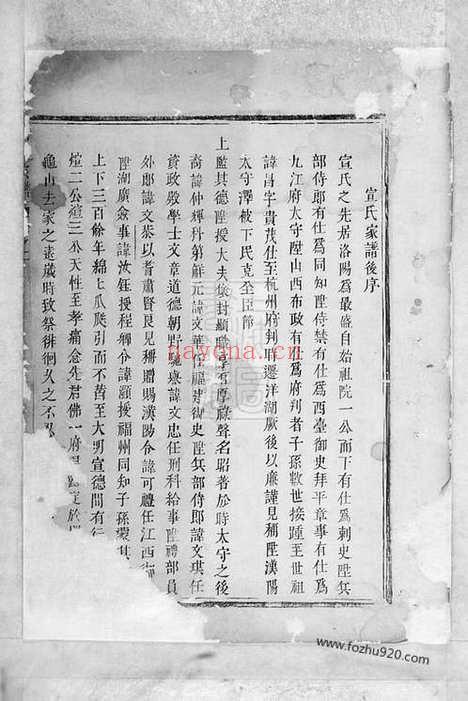 宣氏家譜後序
宣氏之先居洛陽為最盛自始祖院一公而下有仕為刺史陞兵
部侍郎有仕為同知陞侍禁有仕為西臺御史拜平章事有仕為
九江府太守陞山西布政有仕為府判者子孫數世接踵至世祖
諱昌字貴茂仕至杭州府判遷洋湖厥後以廉謹見稱陞漢陽
太守澤被下民克全臣節
上監其德陞授大夫後封顯厚祿聲名昭著於時太守之後
裔諱仲輝丹第鮮元諱文華任福建御史陞兵部侍郎諱文琪任
資政殿學士文章道德朝野諱文忠任刑科給事陞禮部員
外郎諱文恭以耆肅賢良見稱贈賜漢陽令諱可禮任江西
陞湖廣僉事諱汝鈺授程鄉令諱灝授福州同知子孫
上下三百餘年綿瓜瓞引而不替至大明宣德間有行
煊二公煊三公天性至孝痛念先君佛一府
龜山去家之遠歲時致祭徘徊久之不忍
www.fozhu920.com
nayona.cn